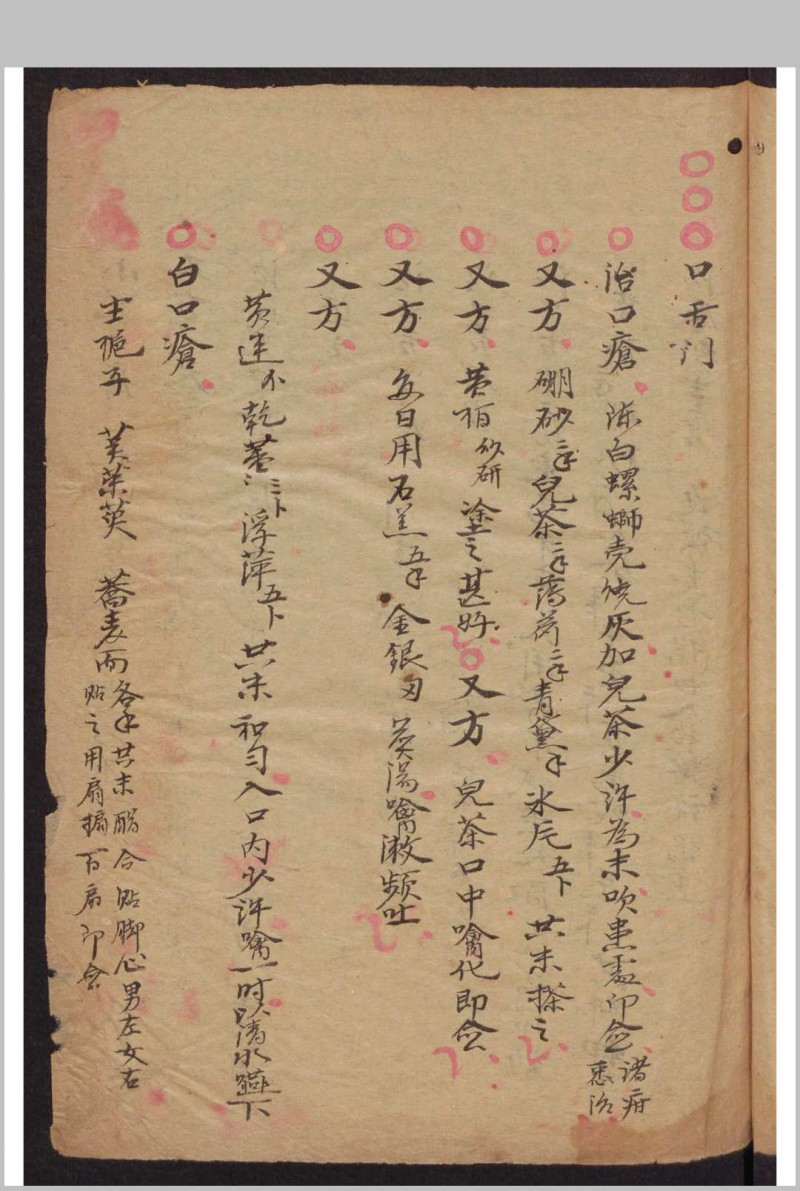 口舌门
治口瘡 陈白螺螄壳烧灰加兒茶少许為末吹患處即愈 诸疳悉治
又方 硼砂二手兒茶二手薄荷二手青黛手氷片五卜 共末搽之
又方 黄栢 研 塗之甚好 又方 兒茶口中噙化即愈
又方 每日用石羔五手 金銀匆 煎湯噙漱频吐
又方
黄連 乾薑三卜 浮萍五卜 共末和匀入口内少许噙一时以清水嚥下
白口瘡
生栀子 吴茱萸 蕎麦面各手共末醋合贴脚心男左女右
贴之用扇搧百扇即愈